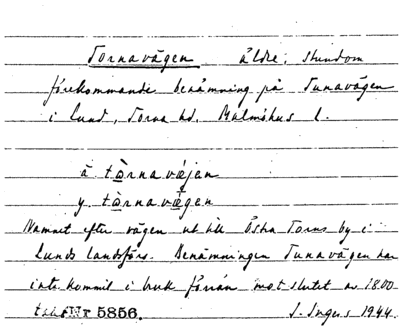 Tornavägen äldre, stundom
förekommande benämning på Tunavägen
i Lund, Torna hd. Malmöhus l.
ä. tòrnavæjen
y. tòrnavægen
Namnet efter vägen ut till Östra Torns by i
Lunds landsförs. Benämningen Tunavägen har
inte kommit i bruk förrän mot slutet av 1800
talet Nr 5856. I. Ingers 1944.